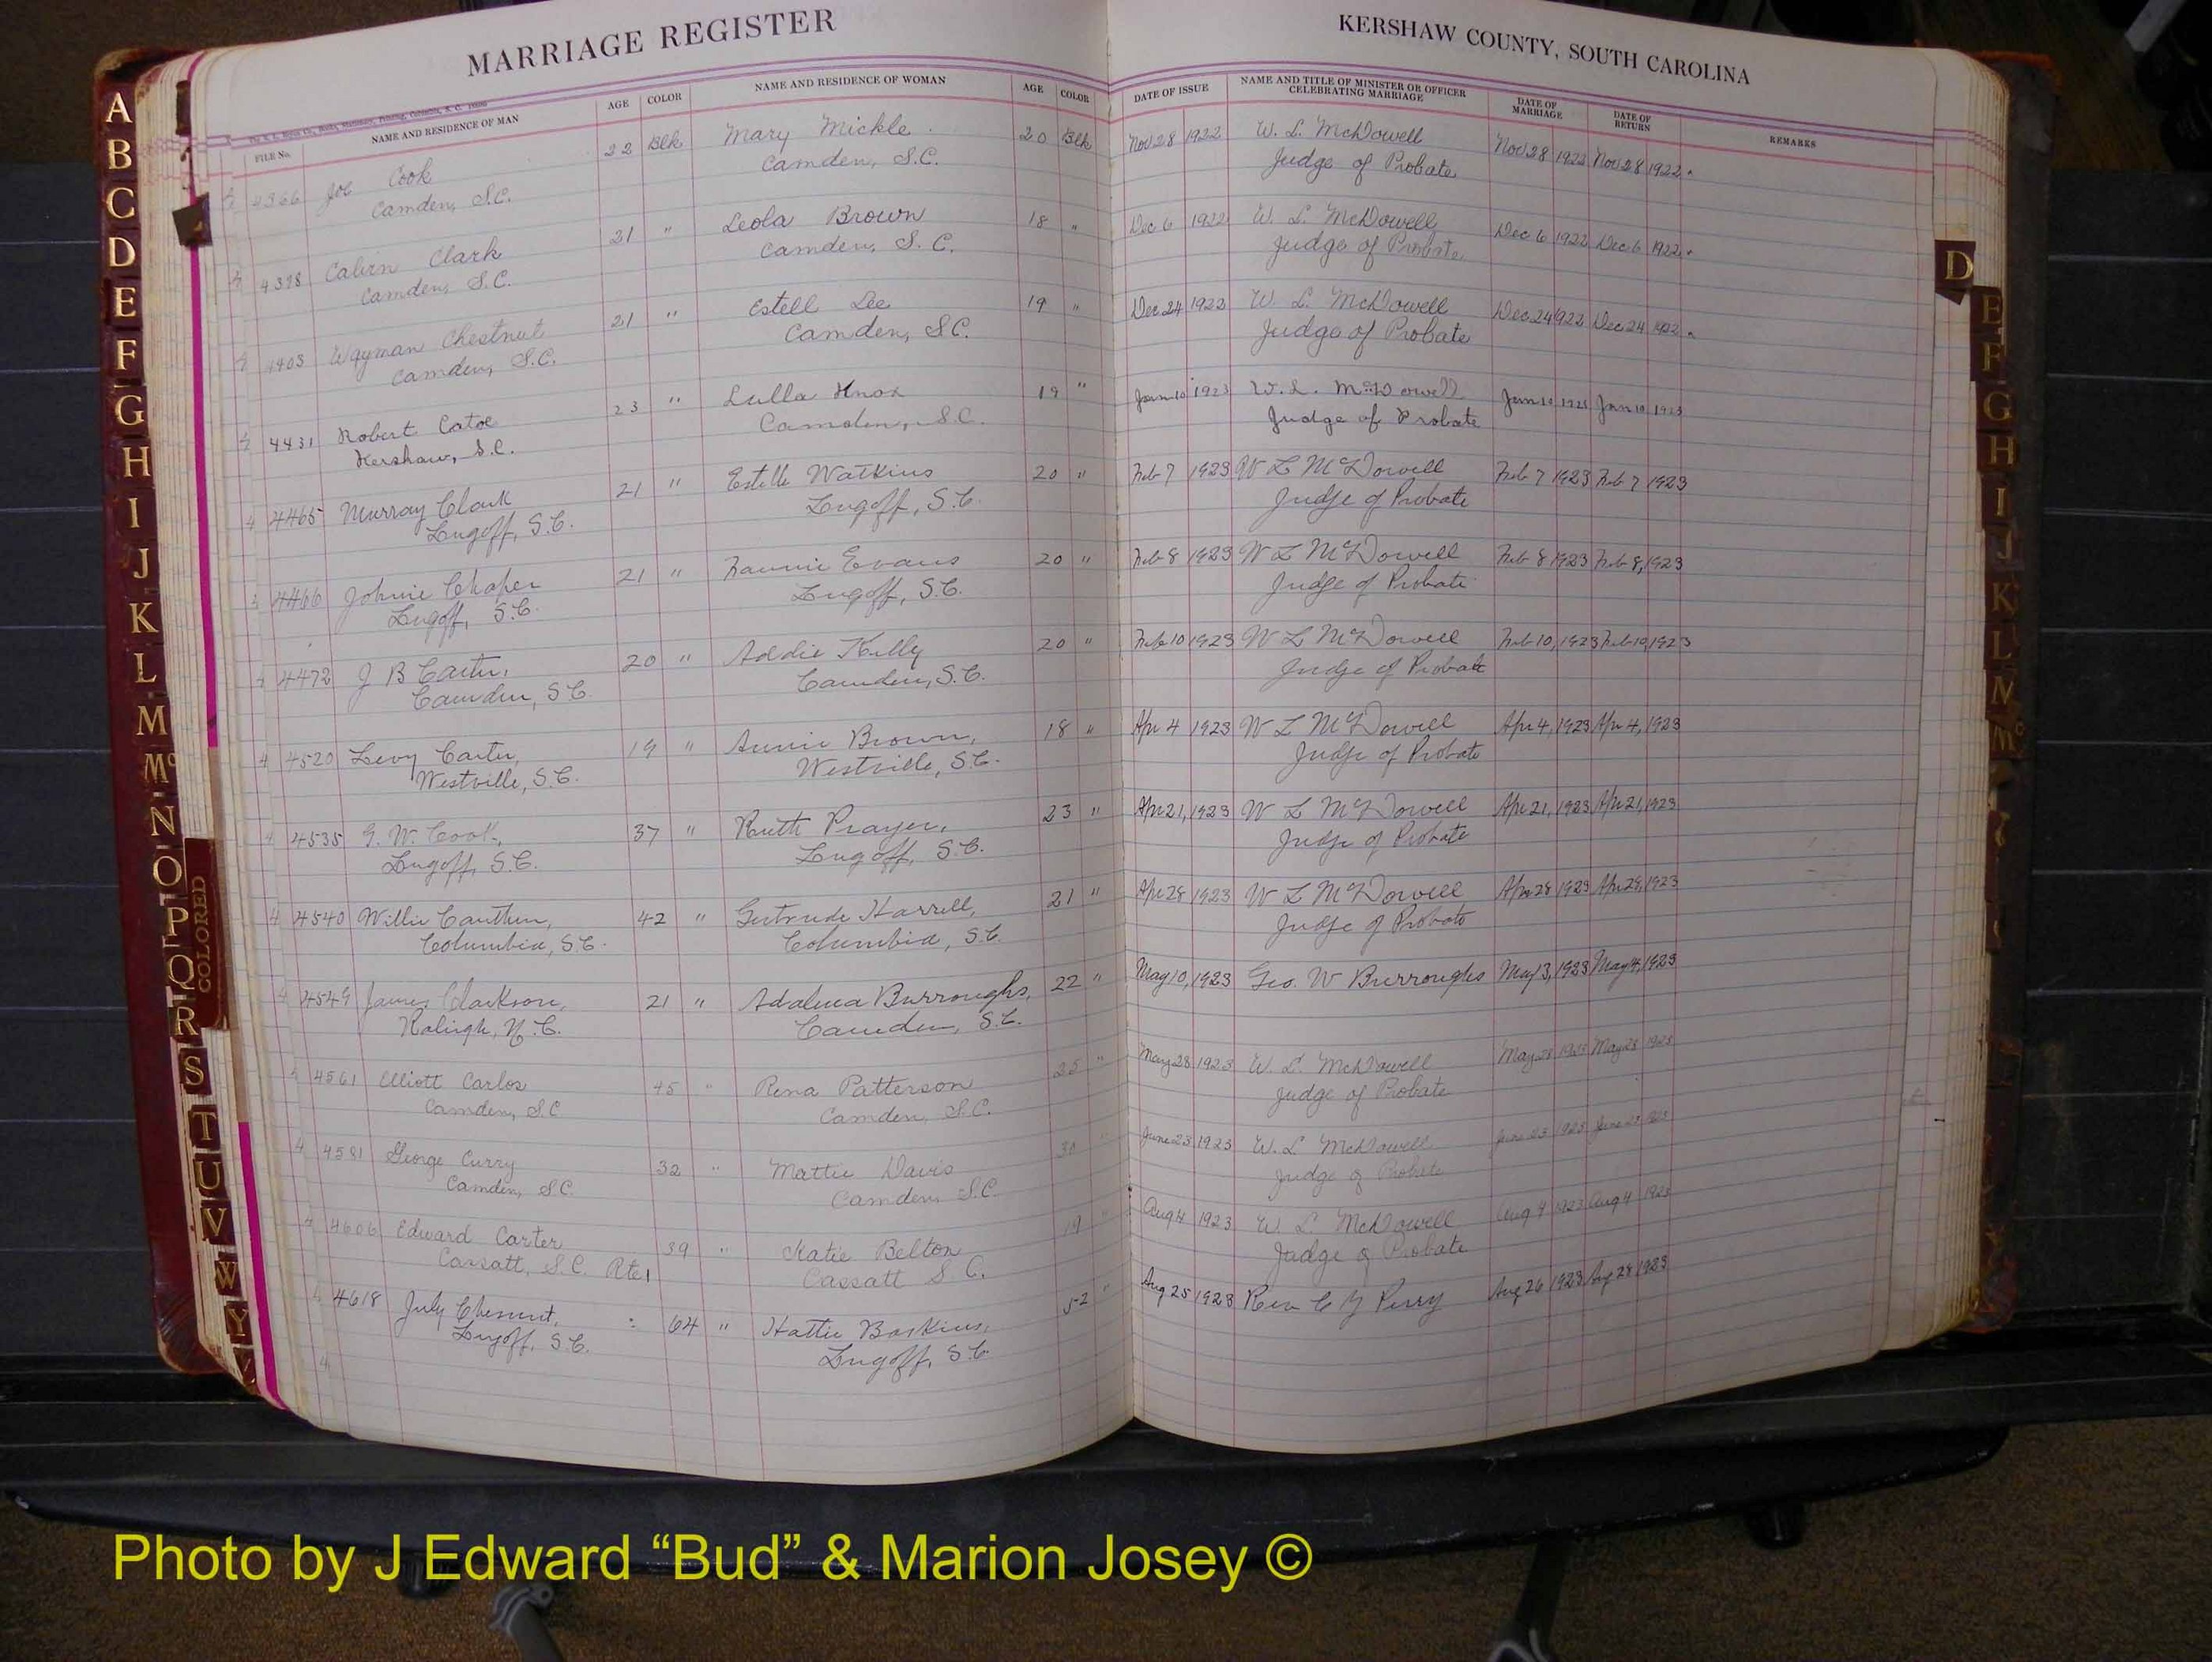 MARRIAGE REGISTER
KERSHAW COUNTY, SOUTH CAROLINA
FILE No. NAME AND RESIDENCE OF MAN AGE COLOR NAME AND RESIDENCE OF WOMAN AGE COLOR DATE OF ISSUE NAME AND TITLE OF MINISTER OR OFFICER CELEBRATING MARRIAGE DATE OF MARRIAGE DATE OF RETURN REMARKS
4366 Joe Cook 22 Blk Mary Mickle 20 Blk Nov 28 1922 W. L. McDowell Nov 28 1922 Nov 28 1922
Camden, S.C. Camden, S.C. Judge of Probate
4398 Calvin Clark 21 " Leola Brown 18 " Dec 6 1922 W. L. McDowell Dec 6 1922 Dec 6 1922
Camden, S.C. Camden, S.C. Judge of Probate
4403 Wayman Chestnut 21 " Estell Lee 19 " Dec 24 1922 W. L. McDowell Dec 24 1922 Dec 24 1922
Camden, S.C. Camden, S.C. Judge of Probate
4431 Robert Catoe 23 " Lulla Knox 19 " Jan 10 1923 W. L. McDowell Jan 10 1923 Jan 10 1923
Kershaw, S.C. Camden, S.C. Judge of Probate
4465 Murray Clark 21 " Estelle Watkins 20 " Feb 7 1923 W L McDowell Feb 7 1923 Feb 7 1923
Lugoff, S.C. Lugoff, S.C. Judge of Probate
4466 Johnie Chaper 21 " Fannie Evans 20 " Feb 8 1923 W L McDowell Feb 8 1923 Feb 8, 1923
Lugoff, S.C. Lugoff, S.C. Judge of Probate
4472 J B Carter, 20 " Addie Kelly 20 " Feb 10 1923 W L McDowell Feb 10, 1923 Feb 10, 1923
Camden, S.C. Camden, S.C. Judge of Probate
4520 Levy Carter, 19 " Annie Brown, 18 " Apr 4 1923 W L McDowell Apr 4, 1923 Apr 4, 1923
Westville, S.C. Westville, S.C. Judge of Probate
4535 G. W. Cook, 37 " Ruth Prayer, 23 " Apr 21, 1923 W L McDowell Apr 21, 1923 Apr 21, 1923
Lugoff, S.C. Lugoff, S.C. Judge of Probate
4540 Willie Cauthen, 42 " Gertrude Harrell, 21 " Apr 28 1923 W L McDowell Apr 28 1923 Apr 28, 1923
Columbia, S.C. Columbia, S.C. Judge of Probate
4549 James Clarkson, 21 " Adaluca Burroughs, 22 " May 10, 1923 Geo. W Burroughs May 13, 1923 May 14, 1923
Raleigh, N.C. Camden, S.C.
4561 Elliott Carlos 45 " Rena Patterson 25 " May 28 1923 W. L. McDowell May 28 1923 May 28 1923
Camden, S.C Camden, S.C. Judge of Probate
4581 George Curry 32 " Mattie Davis 30 " June 23 1923 W. L McDowell June 23 1923 June 23 1923
Camden, S.C. Camden, S.C. Judge of Probate
4606 Edward Carter 39 " Katie Belton 19 " Aug 4 1923 W. L. McDowell Aug 4 1923 Aug 4 1923
Cassatt, S.C. Rte 1 Cassatt S.C. Judge of Probate
4618 July Chesnut, 64 " Hattie Baskins, 52 " Aug 25 1923 Rev C Y Perry Aug 26 1923 Aug 28 1923
Lugoff, S.C. Lugoff, S.C.
A
B
C
D
E
F
G
H
I
J
K
L
M
Mc
N
O
P
Q
R
S
T
U
V
W
Y
COLORED
D
E
F
G
H
I
J
K
L
M
Mc
Photo by J Edward “Bud” & Marion Josey ©